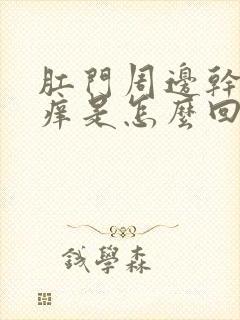 肛門周邊幹
痒是怎麼回
錢學森